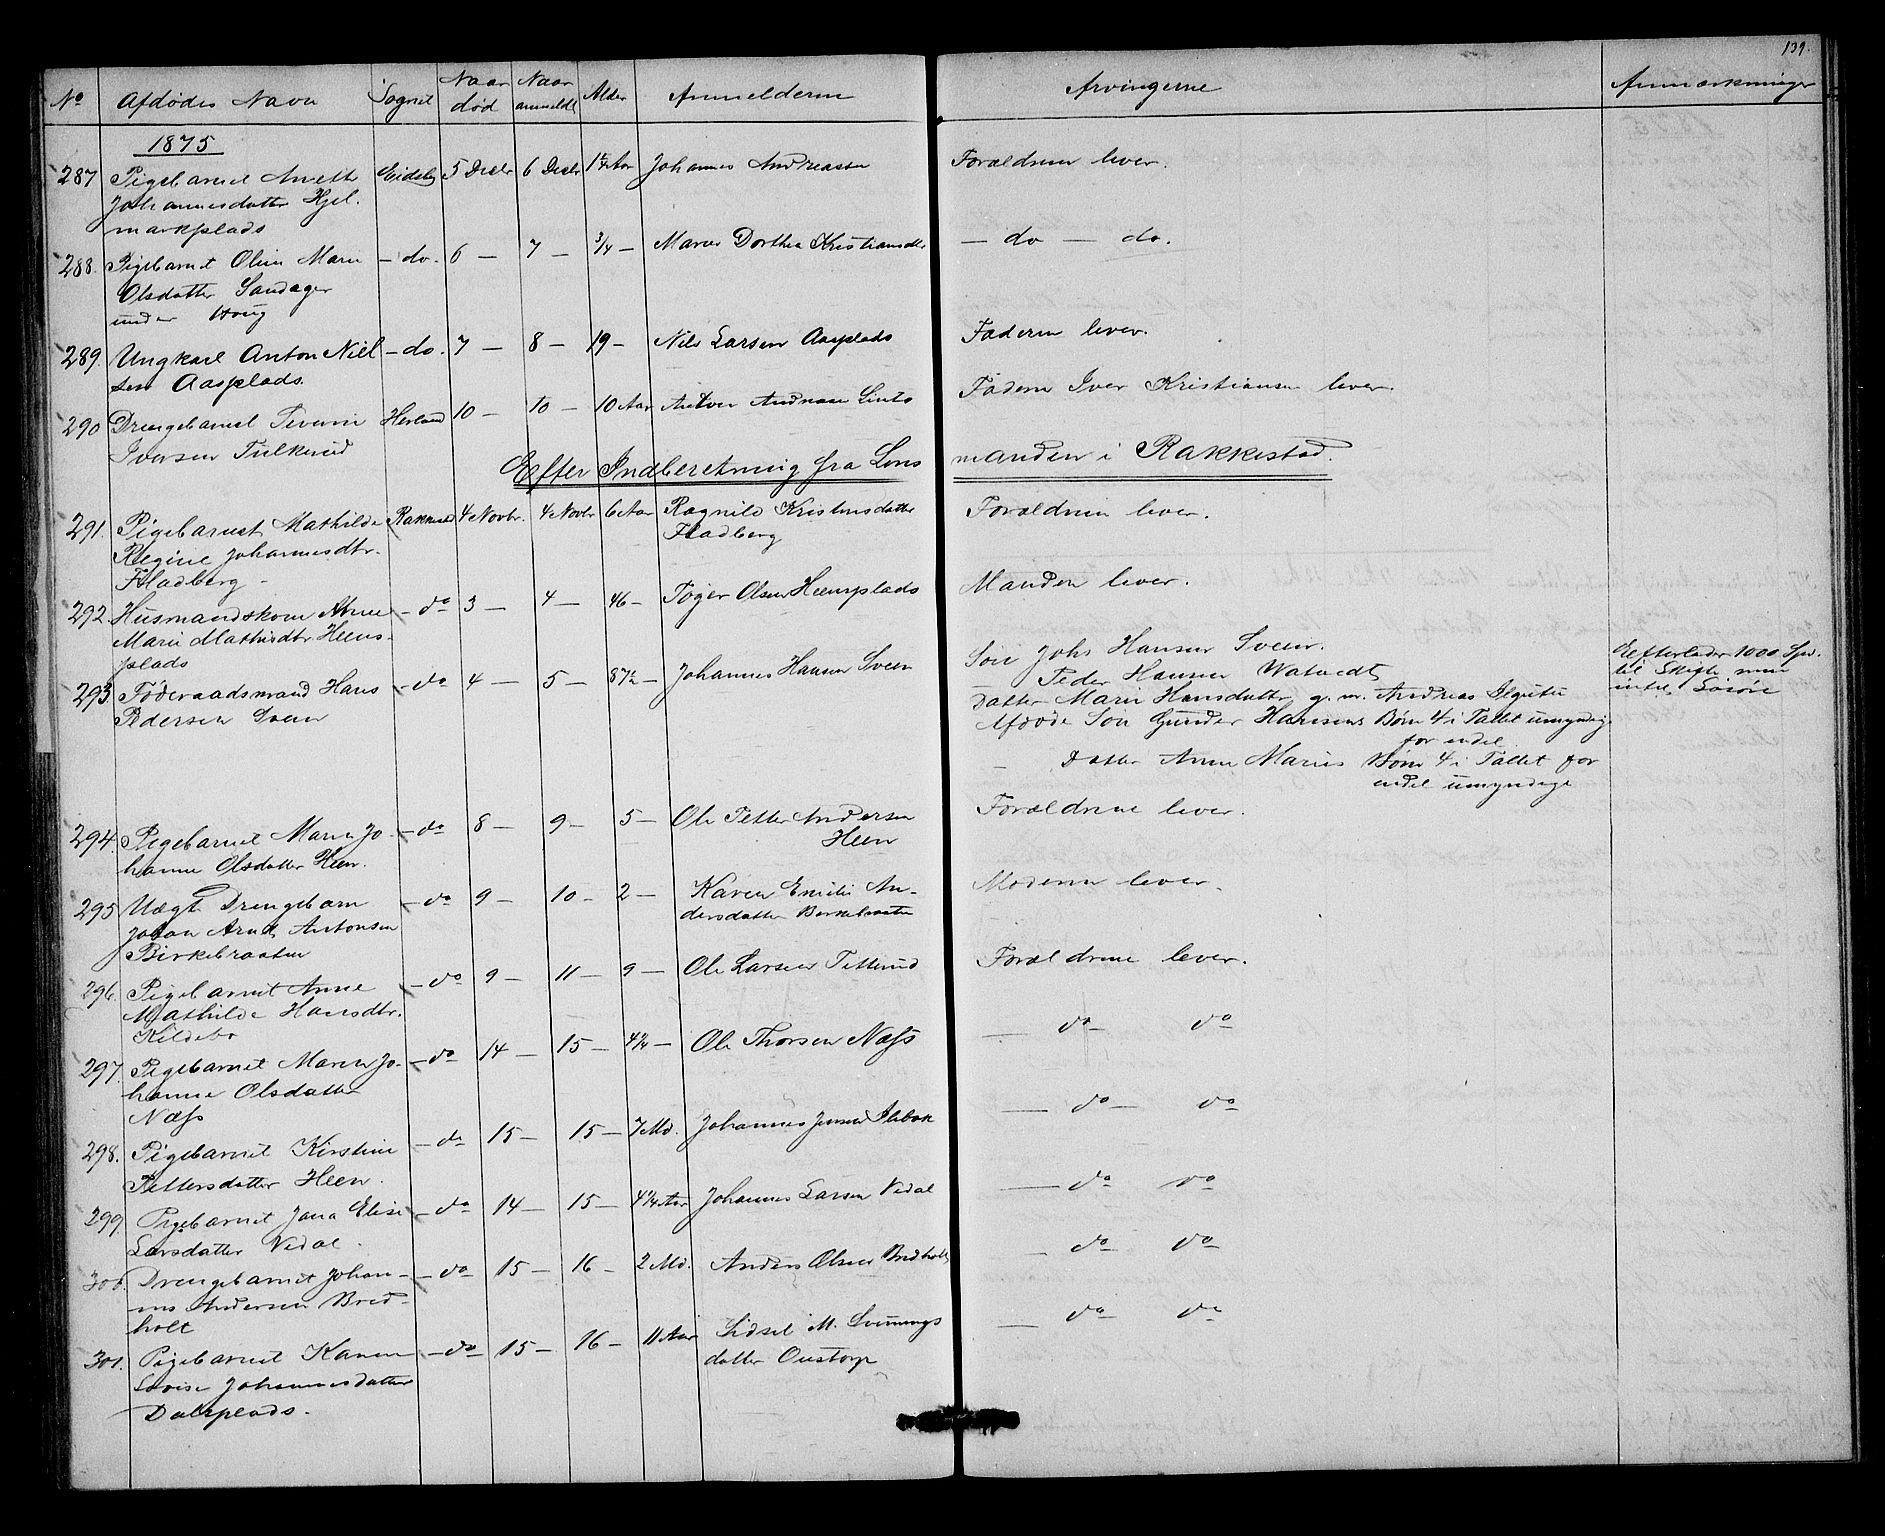 139.
No Afdødes Navn Sognet Naar død Naar anmeldt Alder Anmelderne Arvingerne Anmærkninger
1875
287 Pigebarnet Anette Eidsbg 5 Decbr 6 Decbr Aar Johannes Andreasen Forældrene lever.
Johannesdatter Hjel-
markplads
288. Pigebarnet Oline Marie - do. 6 - 7 - 3/4 - Maren Dorthea Kristiansdtr - do - do.
Olsdatter Sandager
under Houg
289. Ungkarl Anton Niel - do. 7 - 8 - 19 - Nils Larsen Aasplads Faderen lever.
sen Aasplads.
290 Drengebarnet Severin Herland 10 - 10 - 10 Aar Andreas Faderen Iver Kristiansen lever.
Iversen Tulkerud
Efter Indberetning fra Lens manden i Rakkestad.
291. Pigebarnet Mathilde Rakkestad 4 Novbr. 4 Novbr 6 Aar Ragnild Kristensdatter Forældrene lever.
Regine Johannesdtr. Fladberg
Fladberg -
292. Husmandskone Anne - do 3 - 4 - 46 - Tøger Olsen Heensplads Manden lever.
Marie Mathisdtr Heens-
plads
293. Føderaadsmand Hans - do 4 - 5 - 87½ - Johannes Hansen Sveen Søn Johs Hansen Sveen. Efterlader 1000 Spd.
Pedersen Sveen Peder Hansen Watvedt til Skifte men
Datter Marie Hansdatter g. m. Andreas intet Løsøre
Afdøde Søn Gunder Hansens Børn 4 i Tallet umyndige
for endel
- Datter Anne Maries Børn 4 i Tallet for
endel umyndige
294. Pigebarnet Maren Jo- - do 8 - 9 - 5 - Ole Petter Andersen Forældrene lever.
hanne Olsdatter Heen. Heen
295 Uægte Drengebarn - do 9 - 10 - 2 - Karen Emilie An- Moderen lever.
Johan Arnt Antonsen dersdatter Birkebraaten
Birkebraaten
296. Pigebarnet Anne - do 9 - 11 - 9 - Ole Larsen Forældrene lever.
Mathilde Hansdtr.
Kildebo
297. Pigebarnet Maren Jo- - do 14 - 15 - 4¼ - Ole Thorsen Næss - do - do
hanne Olsdatter
Næss
298. Pigebarnet Kirstine - do 15 - 15 - 7 Md. Johannes Jensen - do - do
Pettersdatter Heen.
299. Pigebarnet Jana Elise - do 14 - 15 - 4¼ Aar Johannes Larsen Vedal - do do
Larsdatter Vedal.
300. Drengebarnet Johan- - do 15 - 16 - 2 Md. Anders Olsen Bredholt - do do
nes Andersen Bred-
holt
301. Pigebarnet Karen - do 15 - 16 - 11 Aar Sidsel M. Svennings - do do
Lovise Johannesdatter datter Oustorp
Dalsplads.